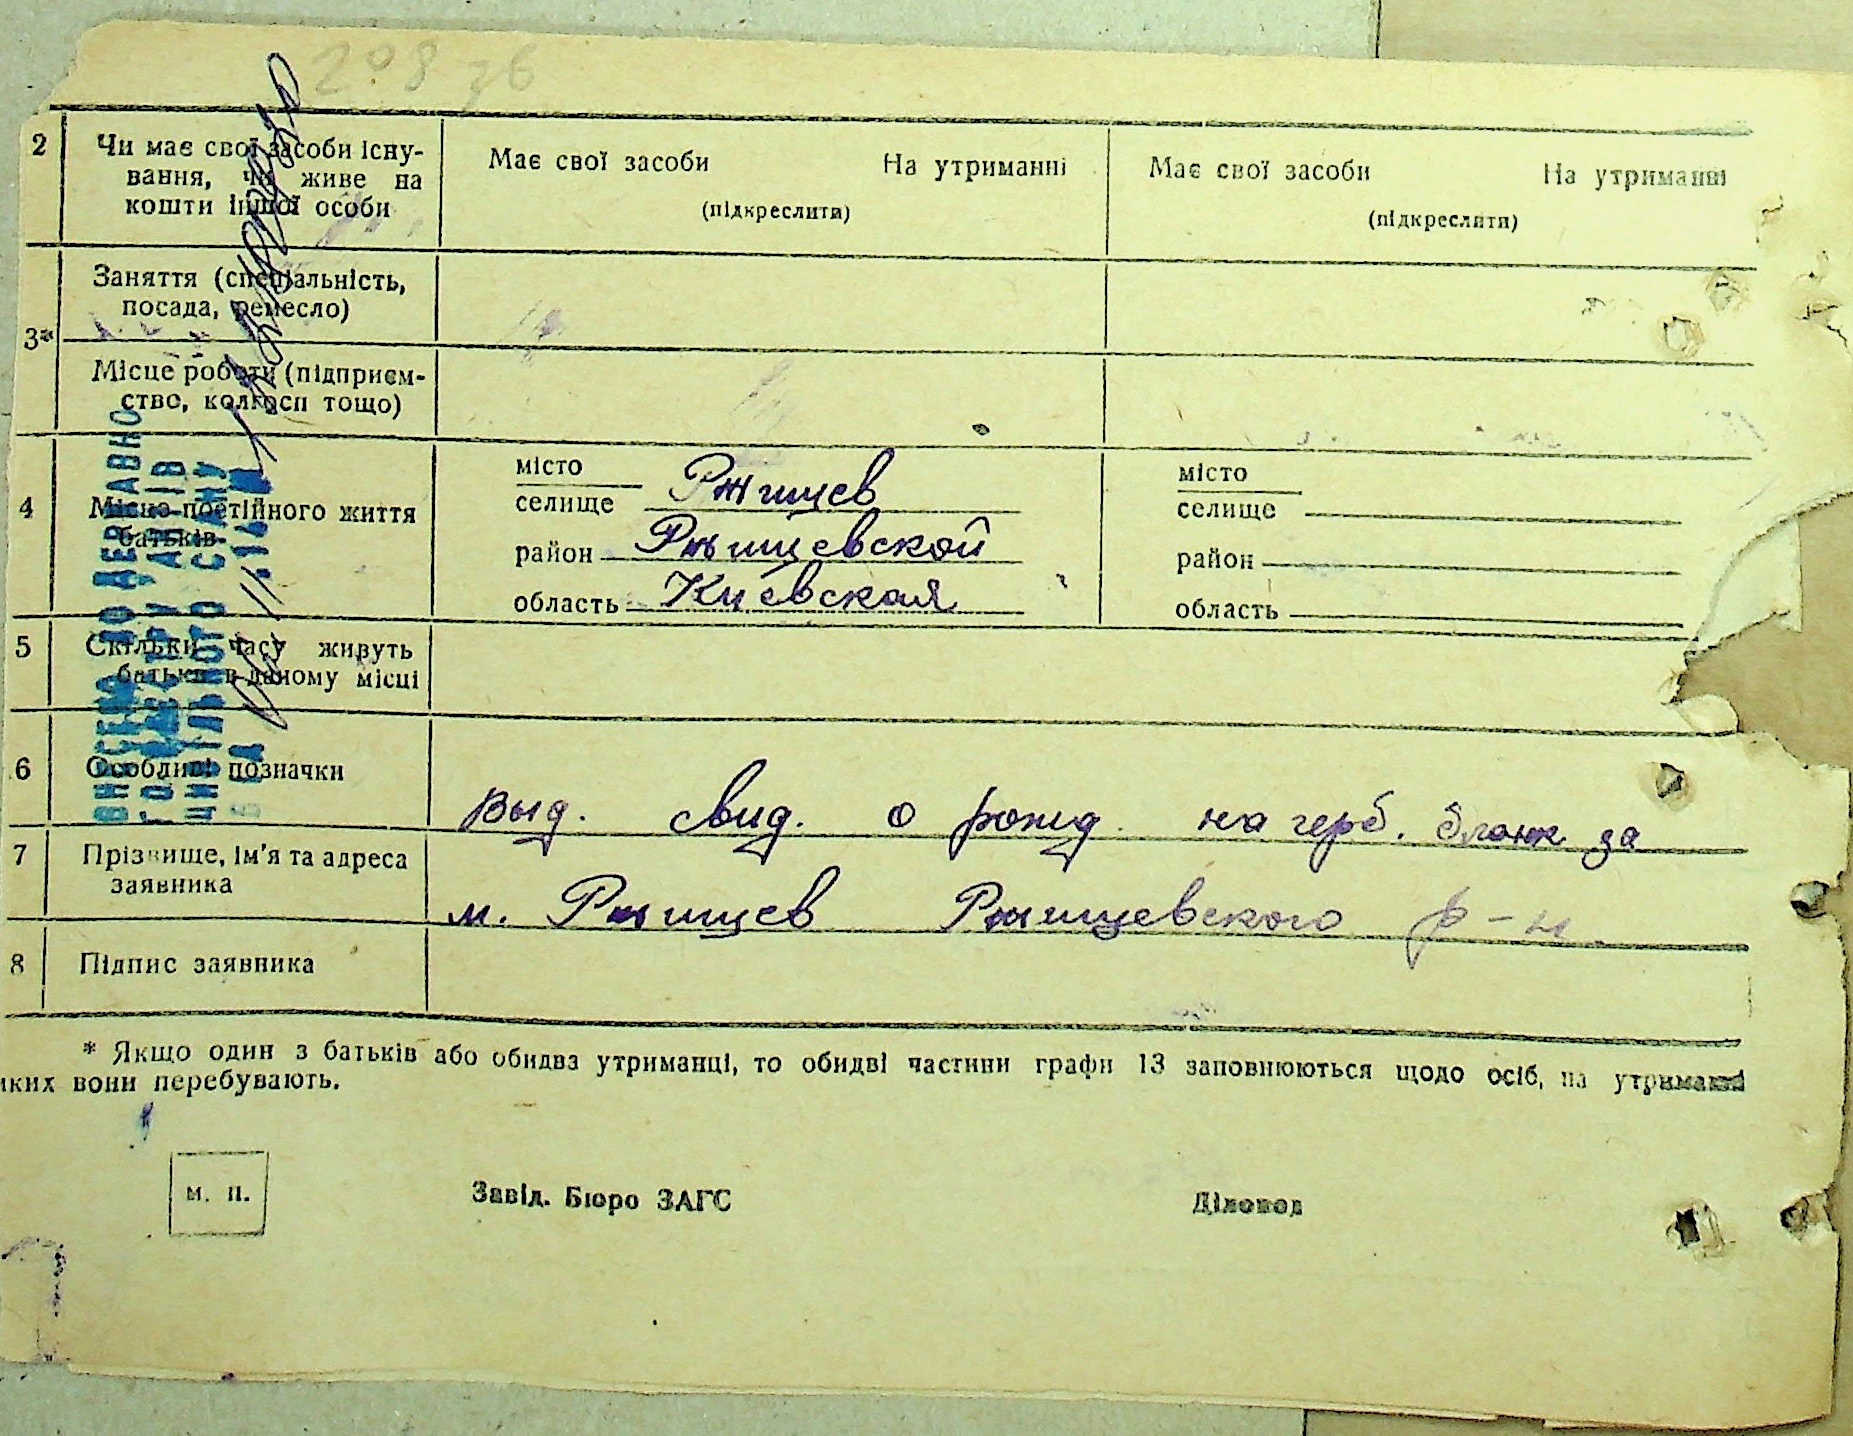 208 зб
2 Чи має свої засоби існу-
вання, чи живе на
кошти іншої особи
Має свої засоби На утриманні
(підкреслити)
Має свої засоби На утриманні
(підкреслити)
3*
Заняття (спеціальність,
посада, ремесло)
Місце роботи (підприєм-
ство, колгосп тощо)
4 Місце постійного життя
батьків
місто
селище Ржищев
район Ржищевской
область Киевская
місто
селище
район
область
5 Скільки часу живуть
батьки в даному місці
6 Особливі позначки
Выд. свид. о рожд. на герб. бланк за
7 Прізвище, ім'я та адреса
заявника
м. Ржищев Ржищевского р-н
8 Підпис заявника
* Якщо один з батьків або обидва утриманці, то обидві частини графи 13 заповнюються щодо осіб, на утриманні
яких вони перебувають.
м. п.
Завід. Бюро ЗАГС Діловод
ВНЕСЕНО ДО ДЕРЖАВНО
ГО РЕЄСТРУ АКТІВ
ЦИВІЛЬНОГО СТАНУ